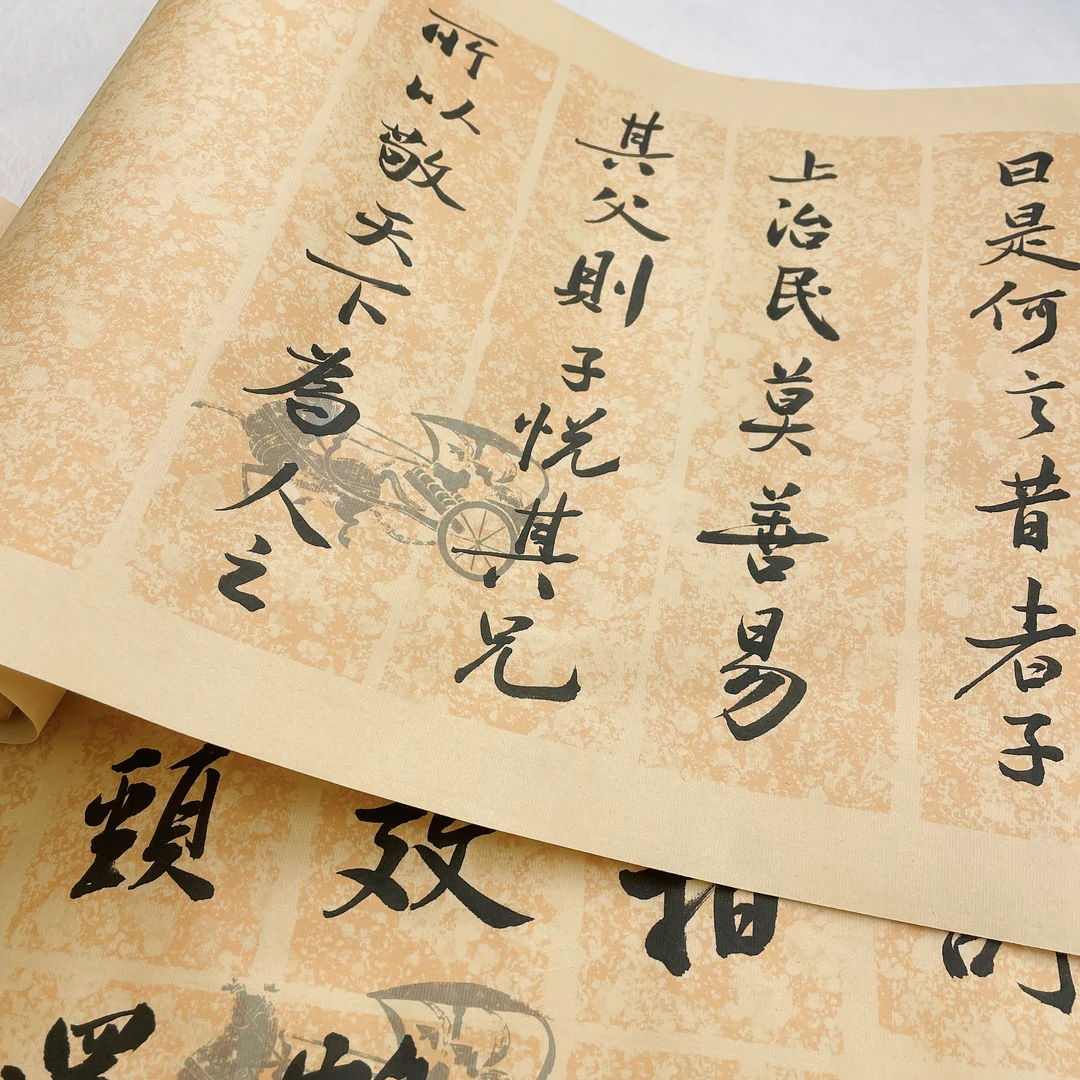 曰是何言昔者子
上治民莫善易
其父則子悦其兄
所以敬天下為人之